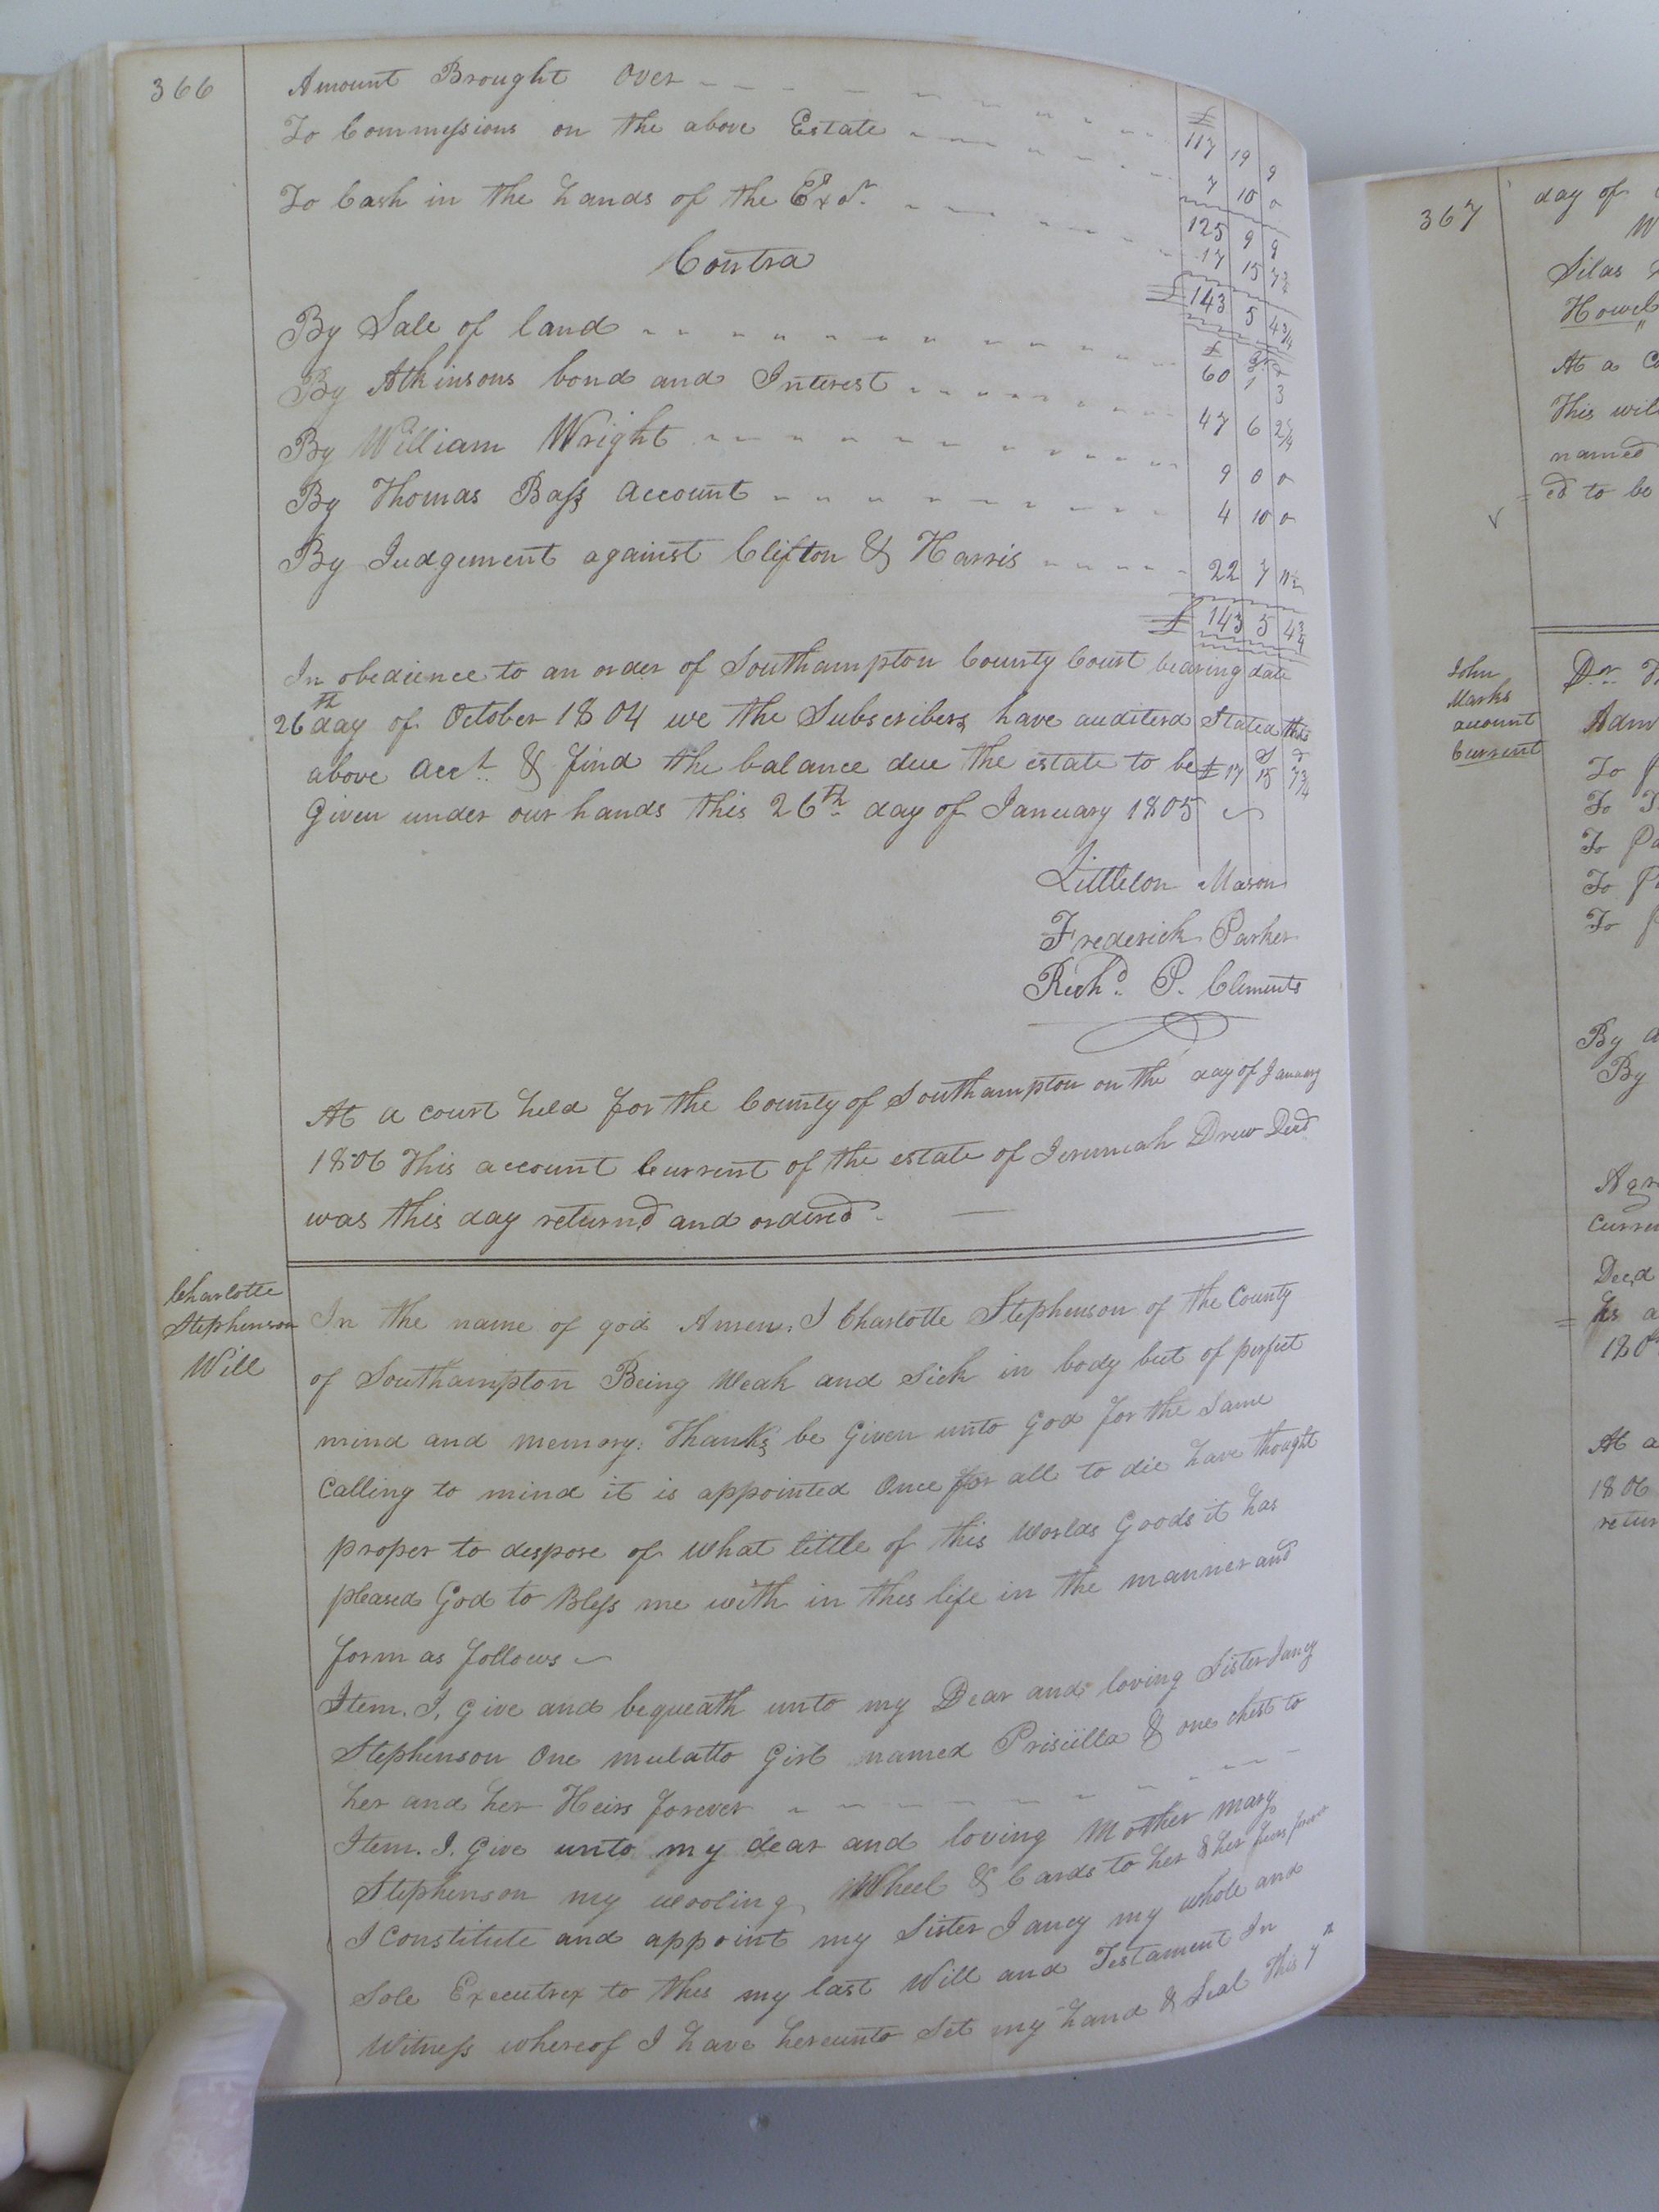 366
Amount Brought Over £ 117 19 9
To Commissions on the above Estate 7 10 0
125 9 9
To Cash in the hands of the Exor. 17 15 7 3/4
£ 143 5 4 3/4
Contra
By Sale of land 60 1 3
By Atkinsons bond and Interest 47 6 2 1/4
By William Wright 9 0 0
By Thomas Bass account 4 10 0
By Judgement against Clifton & Harris 22 7 11 1/2
£ 143 5 4 3/4
In obedience to an order of Southampton County Court bearing date
26th day of October 1804 we the Subscribers have auditerd Stated this
above Acct. & find the balance due the estate to be £ 17 15 7 3/4
Given under our hands this 26th day of January 1805
Littleton Mason
Frederick Parker
Richd. P. Clements
At a court held for the County of Southampton on the day of January
1806 This account Current of the estate of Jeremiah Drew Decd
was this day returnd and orderd.
Charlotte
Stephenson
Will
In the name of god Amen. I Charlotte Stephenson of the County
of Southampton Being Weak and Sick in body but of perfect
mind and memory: Thanks be Given unto God for the Same
Calling to mind it is appointed Once for all to die have thought
proper to despose of what little of this Worlds Goods it has
pleased God to Bless me with in this life in the manner and
form as follows
Item. I, Give and bequeath unto my Dear and loving Sister Jancy
Stephenson One mulatto Girl named Priscilla & one chest to
her and her Heirs forever
Item. I. Give unto my dear and loving Mother mary
Stephenson my wooling Wheel & Cards to her & her heirs forever
I Constitute and appoint my Sister Jancy my whole and
Sole Executrix to this my last Will and Testament In
Witness whereof I have hereunto Set my hand & Seal This 7th
367
day of
Silas
Howel
At a Co
This wil
named
ed to be
John
Marks
account
Current
Dr.
Adm
To
To
To Pa
To
To
By
By
Agr
Curre
Decd
as a
180
At a
1806
retur